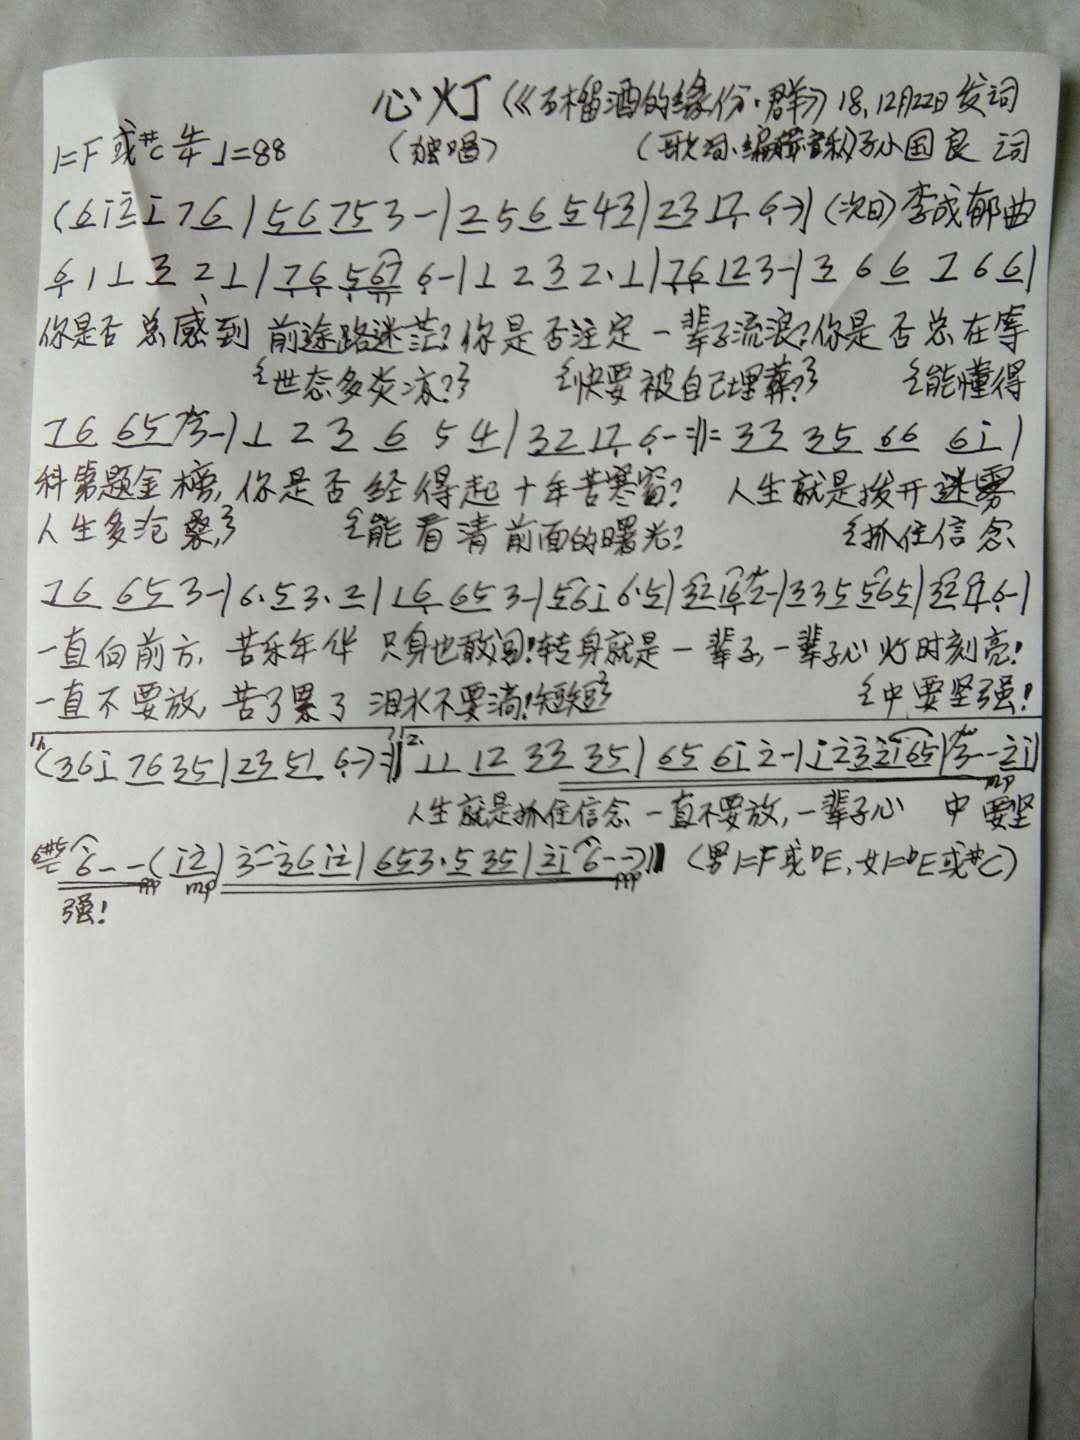 心灯（《石榴酒的缘份·群》）18,12月22日发词
1=F或#C 4/4 ♩=88 （独唱） （歌词、编辑） 孙国良 词
(6 i 2 i 7 6 | 5 6 7 5 3 - | 2 5 6 5 4 3 | 2 3 1 7 6 -) | （次日）李成郁曲
6 1 1 3 2 1 | 7 6 5 6 7 6 - | 1 2 3 2· 1 | 7 6 1 2 3 - | 3 6 6 7 6 6 |
你是否 总感到 前途路迷茫？你是否注定 一辈子流浪？你是否总在等
{世态多炎凉？} {快要被自己埋葬？} {能懂得
7 6 6 5 3 - | 1 2 3 6 5 4 | 3 2 1 7 6 - :||: 3 3 3 5 6 6 6 i |
科第题金榜，你是否 经得起 十年苦寒窗？ 人生就是拨开迷雾
人生多沧桑，} {能看清前面的曙光？ {抓住信念
7 6 6 5 3 - | 6· 5 3· 2 | 1 6 6 5 3 - | 5 6 i 6· 5 | 3 2 1 6 2 - | 3 3 5 5 6 5 | 3 2 1 7 6 - |
一直向前方，苦乐年华 只身也敢闯！转身就是一辈子，一辈子心灯时刻亮！
一直不要放，苦了累了 泪水不要淌！短短} {中要坚强！
1. (3 6 i 7 6 3 5 | 2 3 5 1 6 -) :|| 2. 1 1 1 2 3 3 3 5 | 6 5 6 i 2 - | i 2 3 2 i 6 5 | 3 - - 2 i |
mp
人生就是抓住信念 一直不要放，一辈子心 中 要坚
6 - - ( i 2 | 3 - 3 6 i 2 | 6 5 3· 5 3 5 | 2 i 6 - - ) || （男1=F或bE，女1=bE或#C）
mp mp
强！